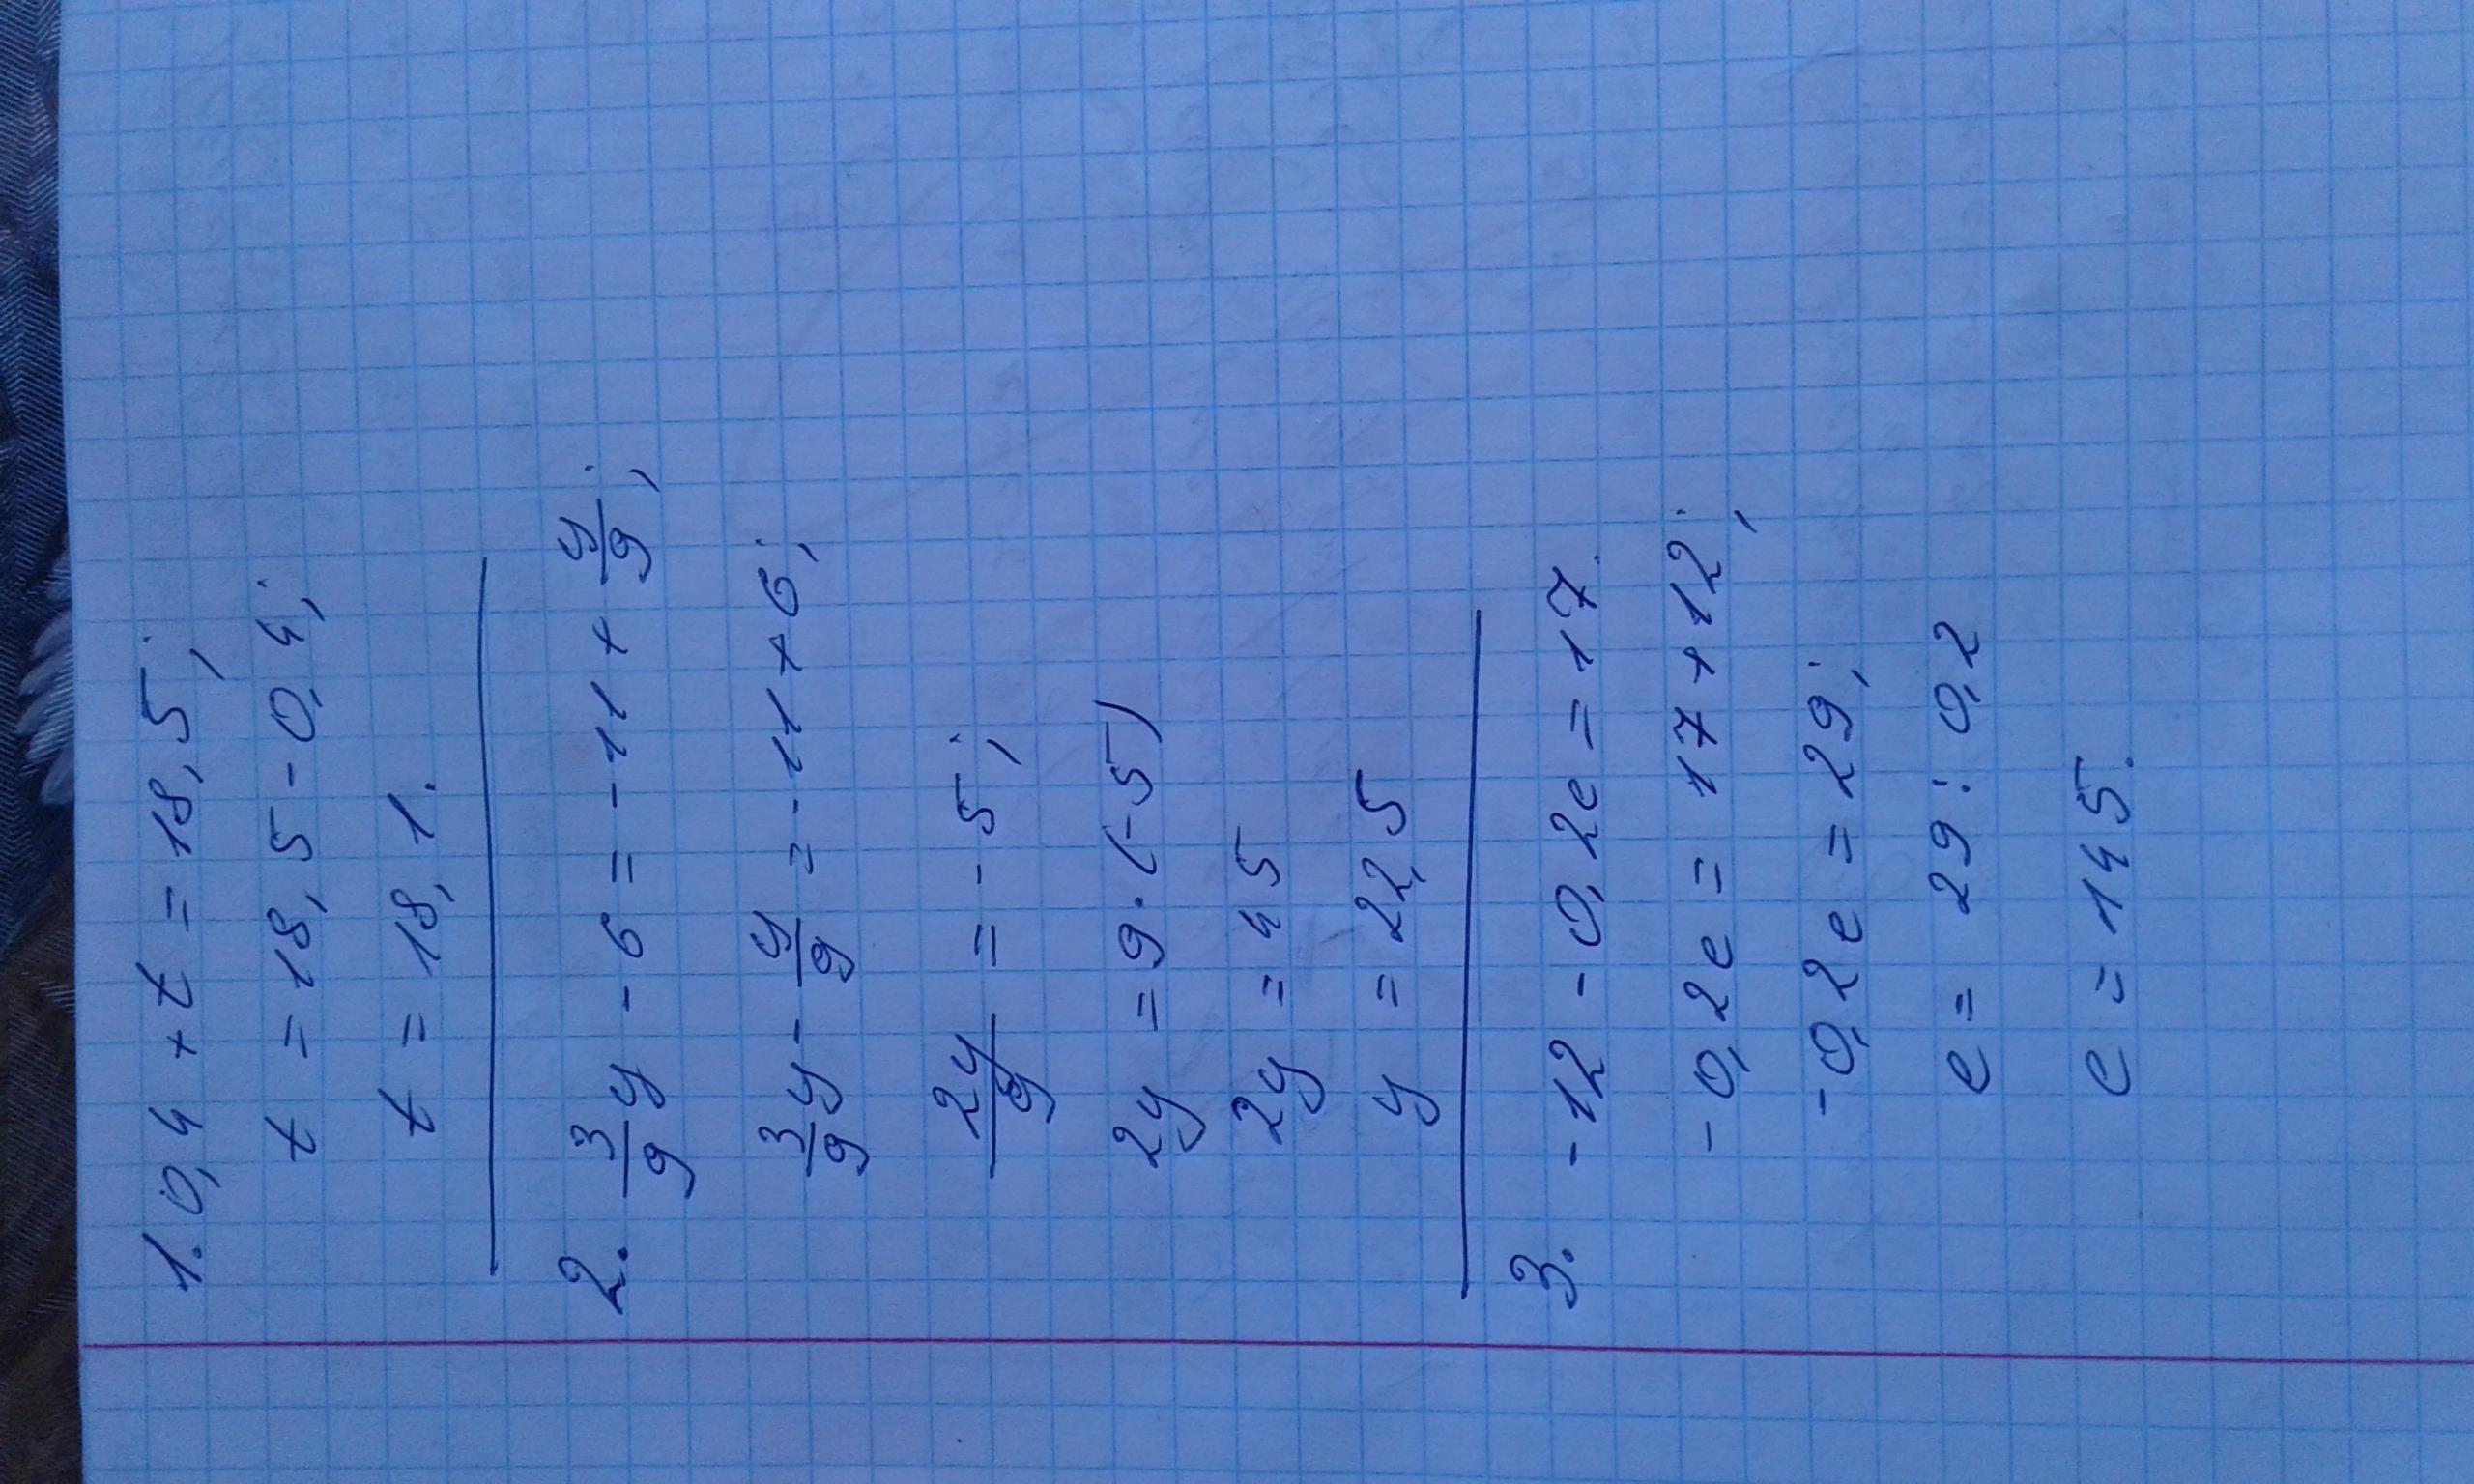 1. 0,4 + t = 18,5;
t = 18,5 - 0,4;
t = 18,1.
2. 3/9 y - 6 = -11 + y/9;
3/9 y - y/9 = -11 + 6;
2y/9 = -5;
2y = 9·(-5)
2y = 45
y = 22,5
3. -12 - 0,2e = 17.
-0,2e = 17 + 12;
-0,2e = 29;
e = 29 : 0,2
e = 145.